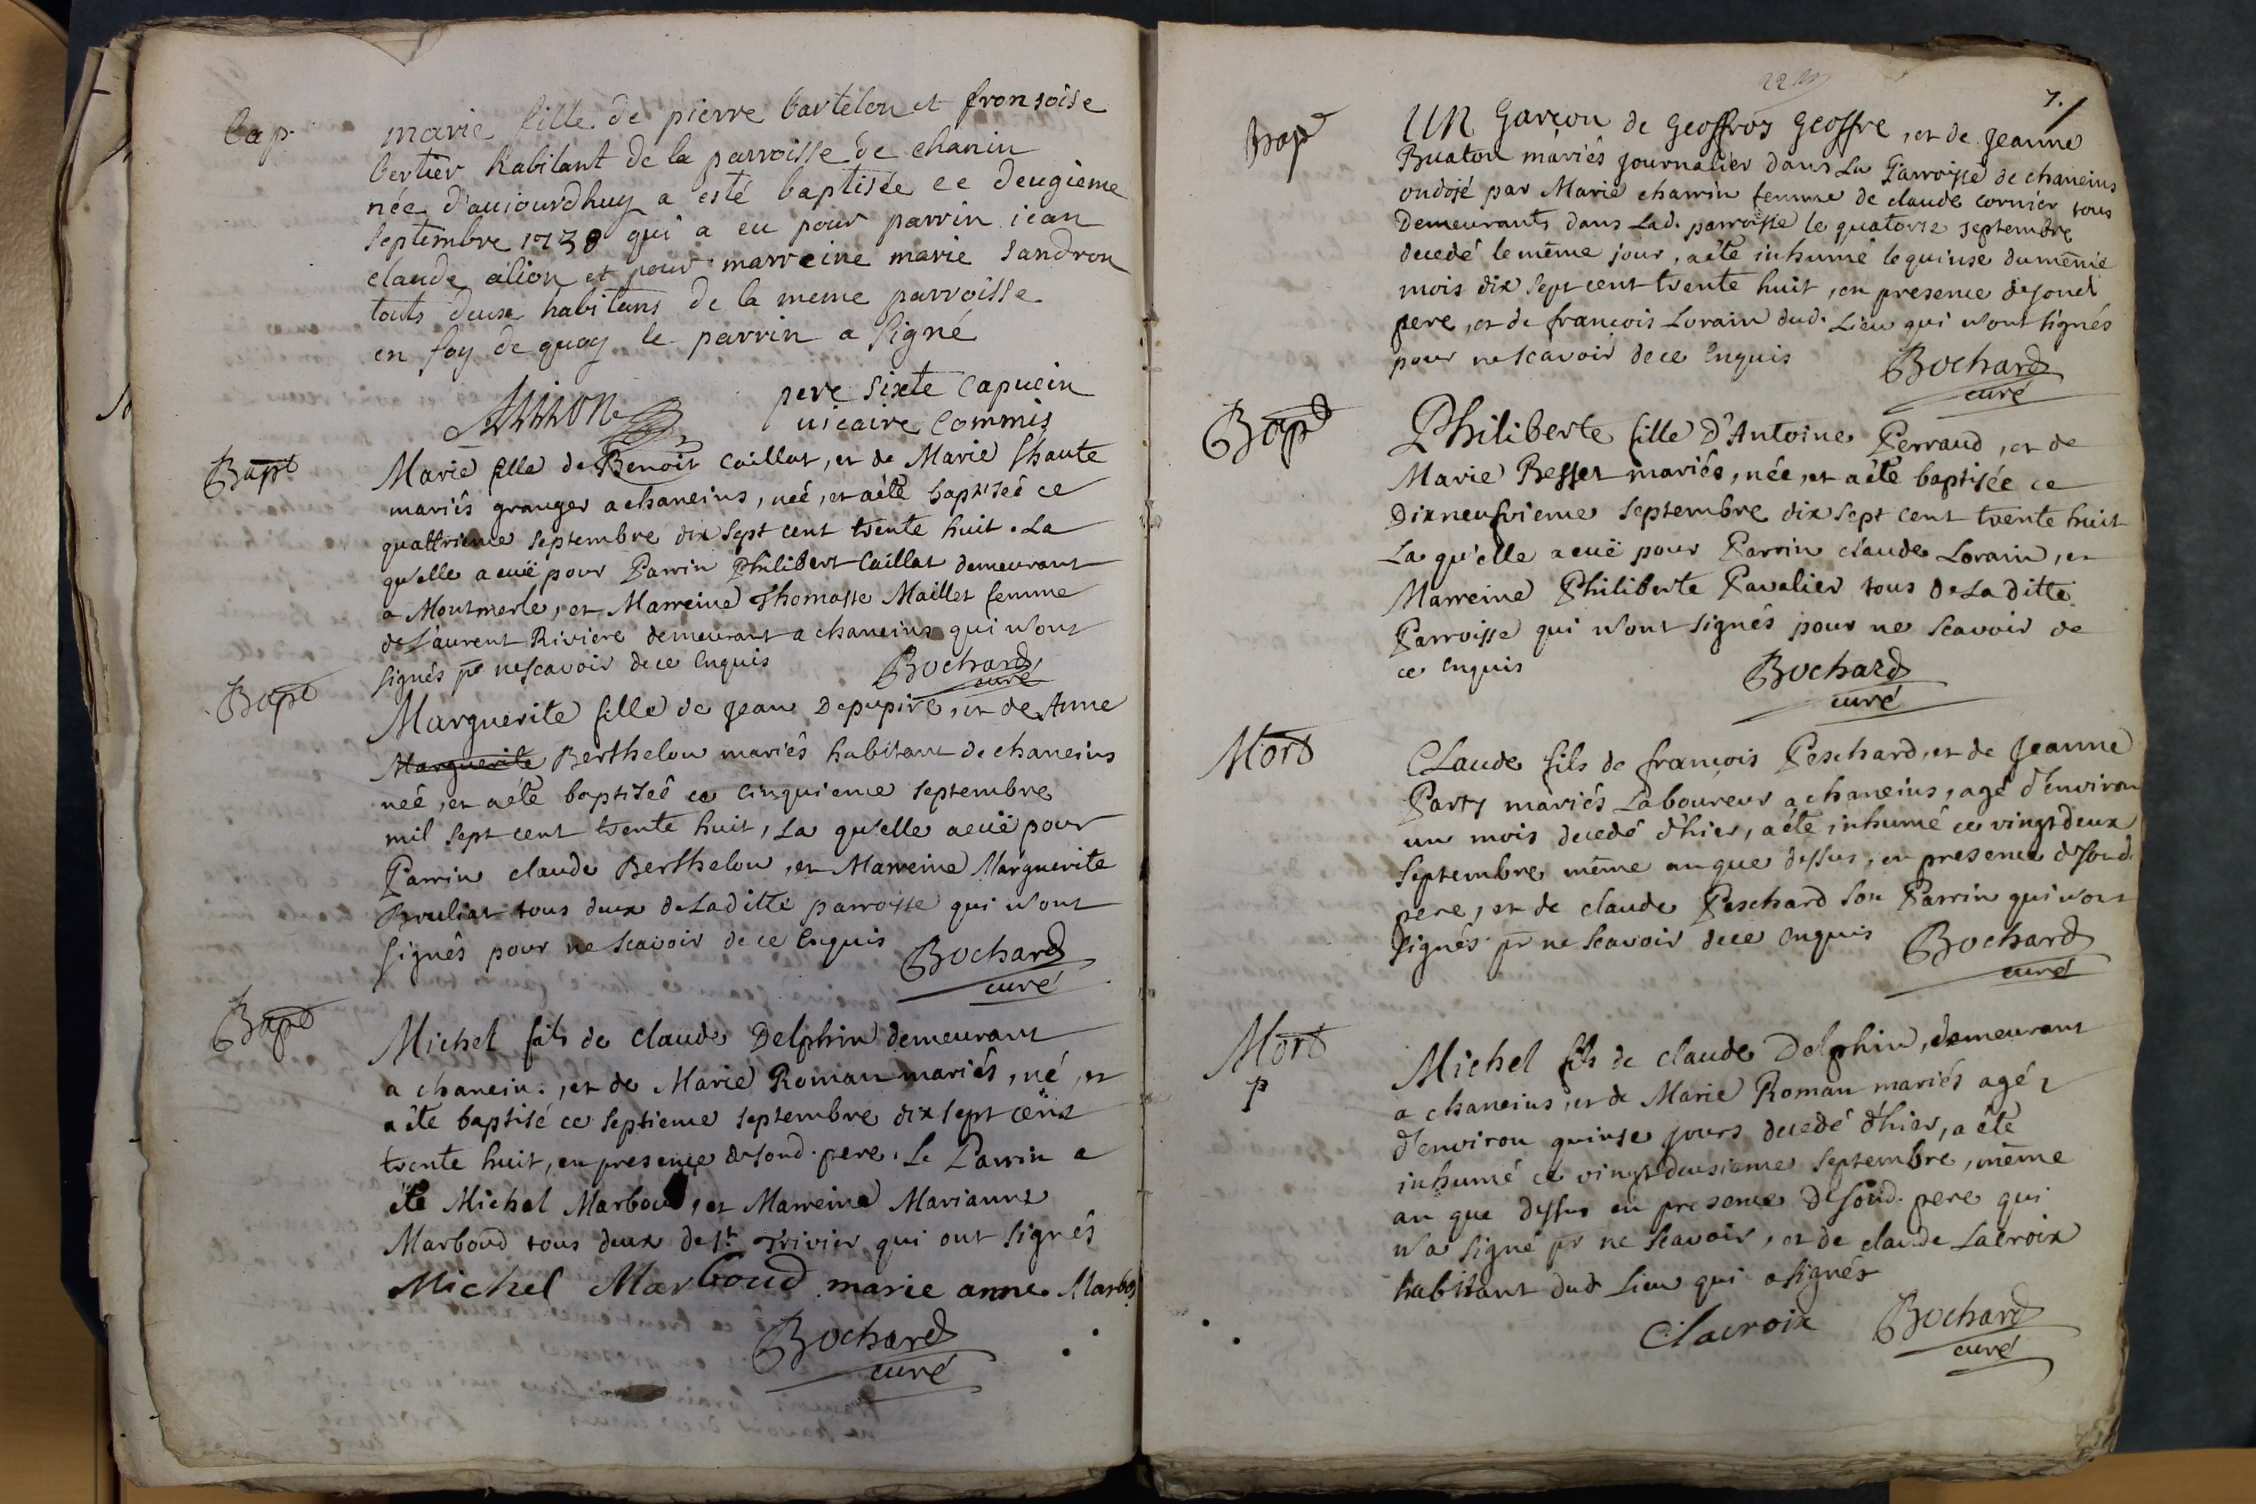 bap.
marie fille de pierre bartelon et fronsoise
bertier habitant de la parroisse de chanin
née d'auiourdhuy a esté baptisée ce deugieme
septembre 1738 qui a eu pour parrin iean
claude alion et pour marreine marie sandron
touts deux habitans de la meme parroisse
en foy de quoy le parrin a signé
pere sixte capucin
uicaire commis
Bapt
Marie fille de Benoit Caillat, et de Marie Chaute
mariés granger a chaneins, neé, et aété baptiseé ce
quattrieme septembre dix sept cent trente huit. La
qu'elle a euë pour Parrin Philibert Caillat demeurant
a Montmerle, et Marreine Thomasse Maillet femme
de Laurent Riviere demeurant a chaneins qui n'ont
signés pr ne scavoir de ce Enquis Bochard
curé
Bapt
Marguerite fille de Jean Depupire, et de Anne
Marguerite Berthelon mariés habitant de chaneins
neé, et aété baptiseé ce cinquieme septembre
mil sept cent trente huit, La qu'elle a euë pour
Parrin claude Berthelon, et Marreine Marguerite
Bruliat tous deux de Laditte parroisse qui n'ont
signés pour ne scavoir de ce Enquis Bochard
curé
Bapt
Michel fils de claude Delphin demeurant
a chanein., et de Marie Roman mariés, né, et
a été baptisé ce septieme septembre dix sept cent
trente huit, en presence desond. pere. Le Parrin a
été Michel Marboud, et Marreine Marianne
Marboud tous deux de st. Trivier qui ont signés
Michel Marboud marie anne Marbo
Bochard
curé
7.
Bapt
UN Garçon de Geoffroy Geoffre, et de Jeanne
Buaton mariés journalier dans La Parroisse de chaneins
ondojé par Marie charrin femme de claude cornier tous
Demeurants dans Lad. parroisse le quatorze septembre
decedé le même jour, aété inhumé le quinse du même
mois dix sept cent trente huit, en presence desond
pere, et de françois Lorain dud. Lieu qui n'ont signés
pour ne scavoir de ce Enquis Bochard
curé
Bapt
Philiberte fille D'Antoine Perraud, et de
Marie Besset mariés, née, et aété baptisée ce
Dixneufvieme septembre dix sept cent trente huit
La qu'elle a euë pour Parrin claude Lorain, et
Marreine Philiberte Pavalier tous de La ditte
Parroisse qui n'ont signés pour ne scavoir de
ce Enquis Bochard
curé
Mort
Claude fils de françois Peschard, et de Jeanne
Party mariés Laboureur a chaneins, agé d'environ
un mois decedé d'hier, aété inhumé ce vingt deux
septembre même an que dessus, en presence desond.
pere, et de claude Peschard son Parrin qui n'ont
signés pr ne scavoir de ce Enquis Bochard
curé
Mort
p
Michel fils de claude Delphin, demeurant
a chaneins, et de Marie Roman mariés agé
d'environ quinse jours decedé d'hier, a été
inhumé ce vingt deusieme septembre, même
an que dessus en presence desond. pere qui
n'a signé pr ne scavoir, et de claude Lacroix
habitant dud Lieu qui a signés
Clacroix Bochard
curé